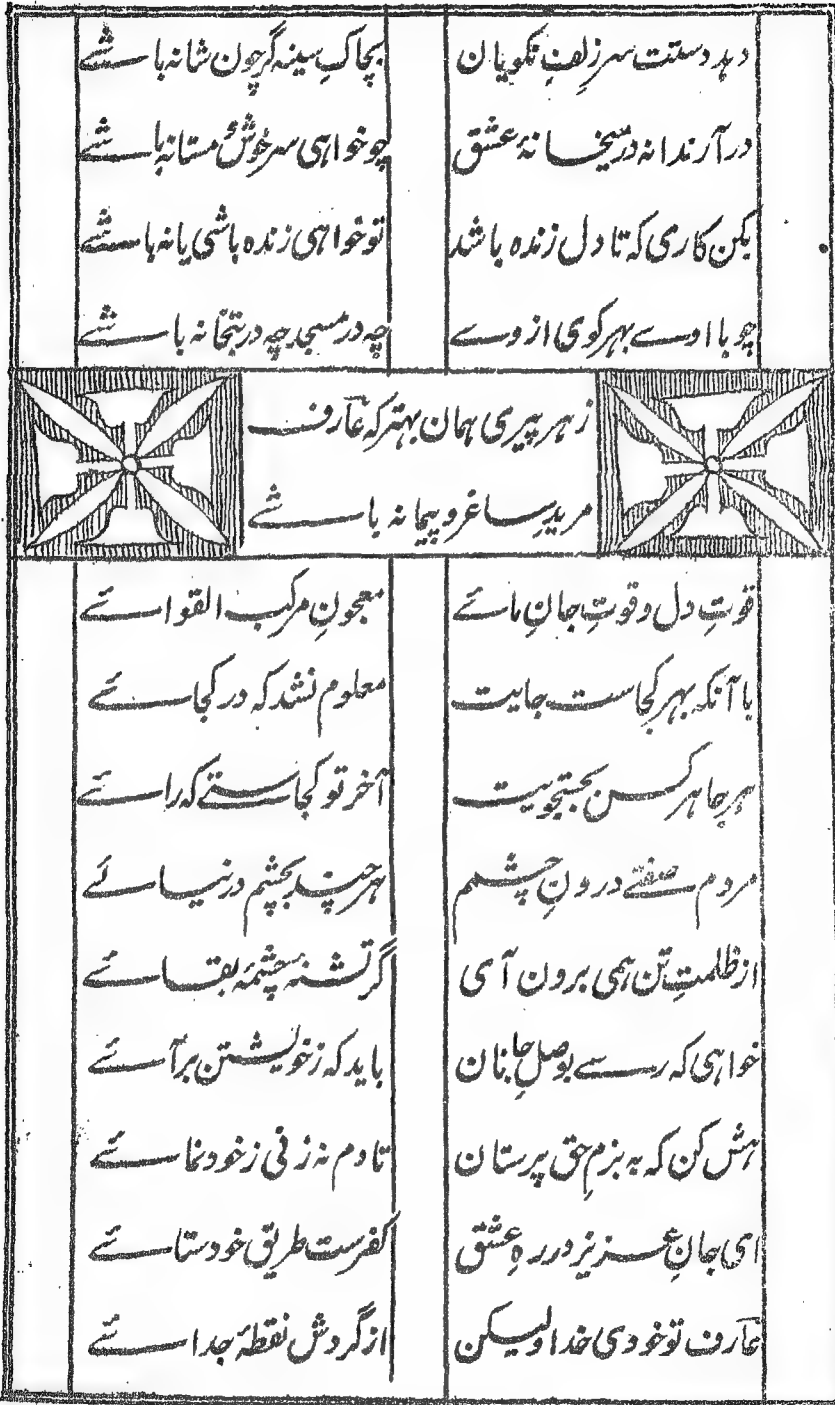 دهد دستت سرزلفِ نکویان بچاکِ سینه گر چون شانه باشے
در آ رندانه در میخانهٔ عشق چو خواهی سرخوش و مستانه باشے
بکن کاری که تا دل زنده باشد تو خواهی زنده باشی یا نه باشے
چو با اوسے بهر کوی از وسے چه در مسجد چه در بتخانه باشے
زهر پیری همان بهتر که عارف
مریدِ ساغر و پیمانه باشے
قوّتِ دل و قوتِ جانِ مائے معجونِ مرکب القوائے
با آنکه بهر کجاست جایت معلوم نشد که در کجائے
هر جا هر کس بجستجویت آخر تو کجاستے که رائے
مردم صفتے درونِ چشم هر چند بچشم در نیائے
از ظلمتِ تن همی برون آی گر تشنهٔ چشمهٔ بقائے
خواهی که رسے بوصلِ جانان باید که ز خویشتن برآئے
هش کن که به بزمِ حق پرستان تا دم نه زنی ز خود نمائے
ای جانِ عزیز در رهِ عشق کفرست طریق خود ستائے
عارف تو خودی خدا ولیکن از گردش نقطهٔ جدائے